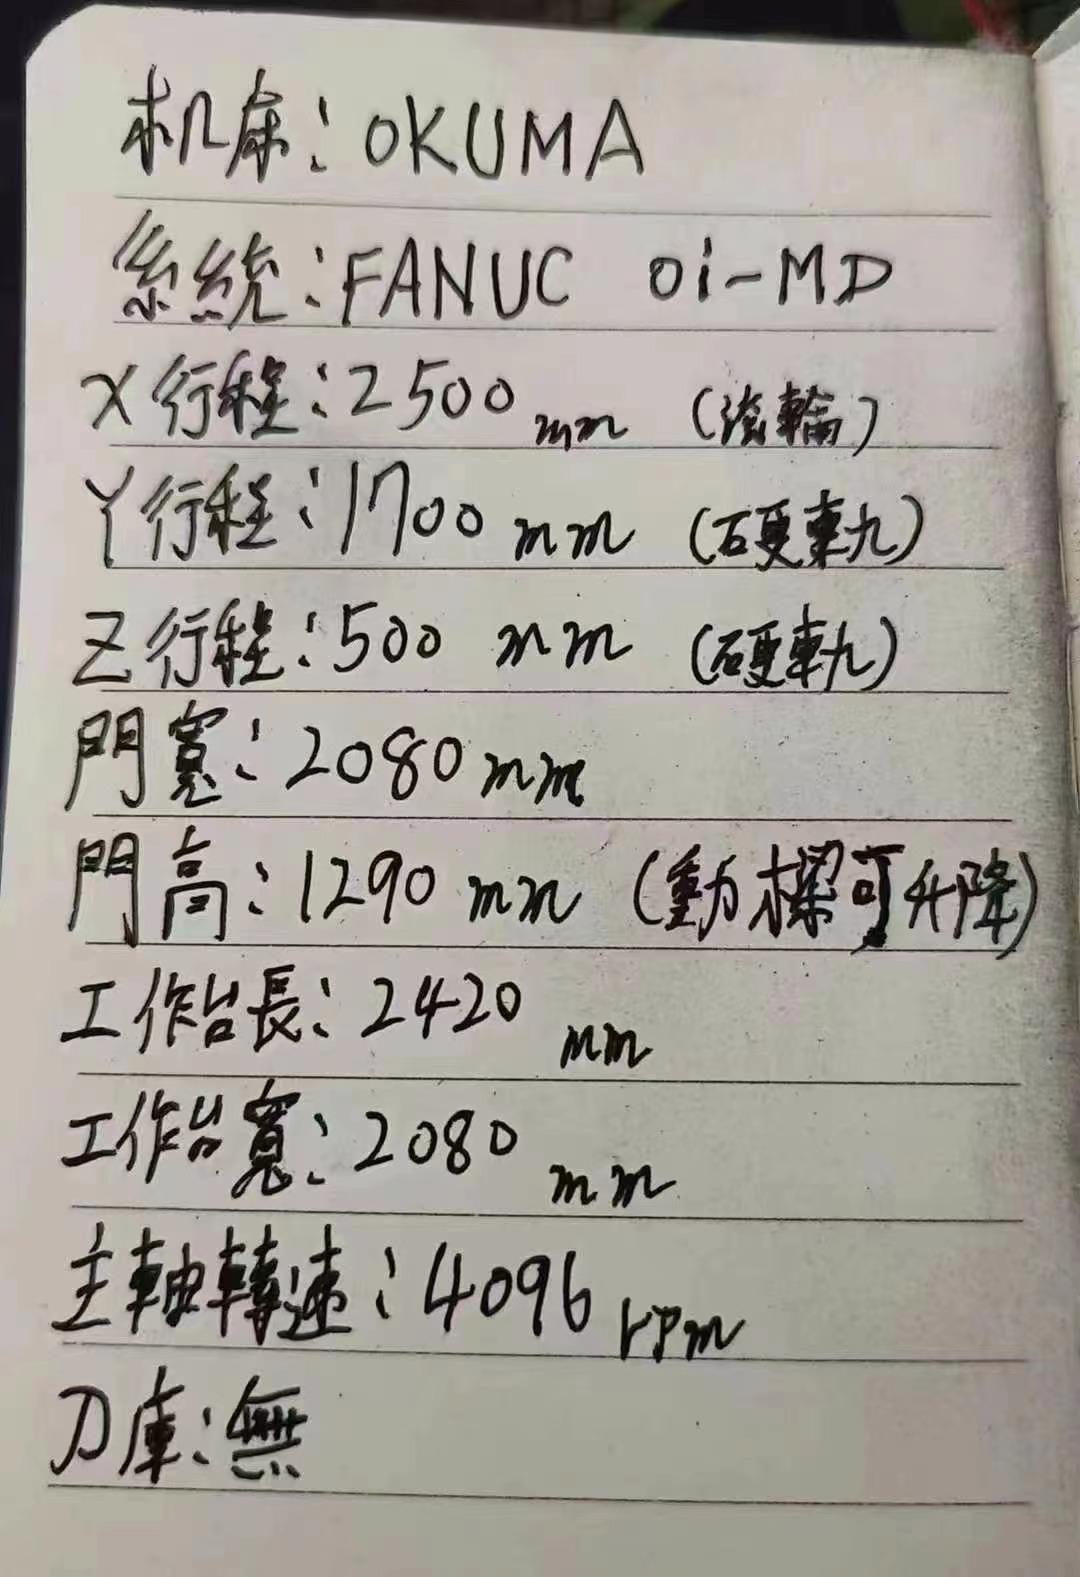 机床：OKUMA
系統：FANUC Oi-MD
X行程：2500mm（滾輪）
Y行程：1700mm（硬軌）
Z行程：500mm（硬軌）
門寬：2080mm
門高：1290mm（動樑可升降）
工作台長：2420mm
工作台寬：2080mm
主軸轉速：4096rpm
刀庫：無